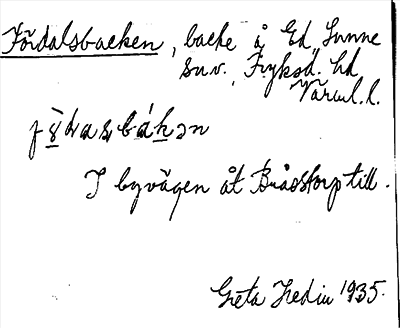 Fördalsbacken, backe å Ed, Sunne
sn.v. Fryksd. hd
Värml. l.
I byvägen åt Bråstorp till.
Greta Hedin 1935.